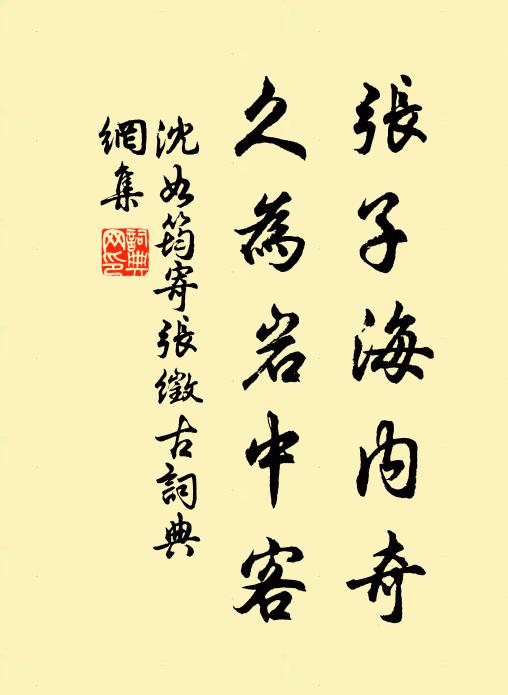 張子海内奇
久為岩中客
沈如筠寄張徵古詞典
網集
詞典网印